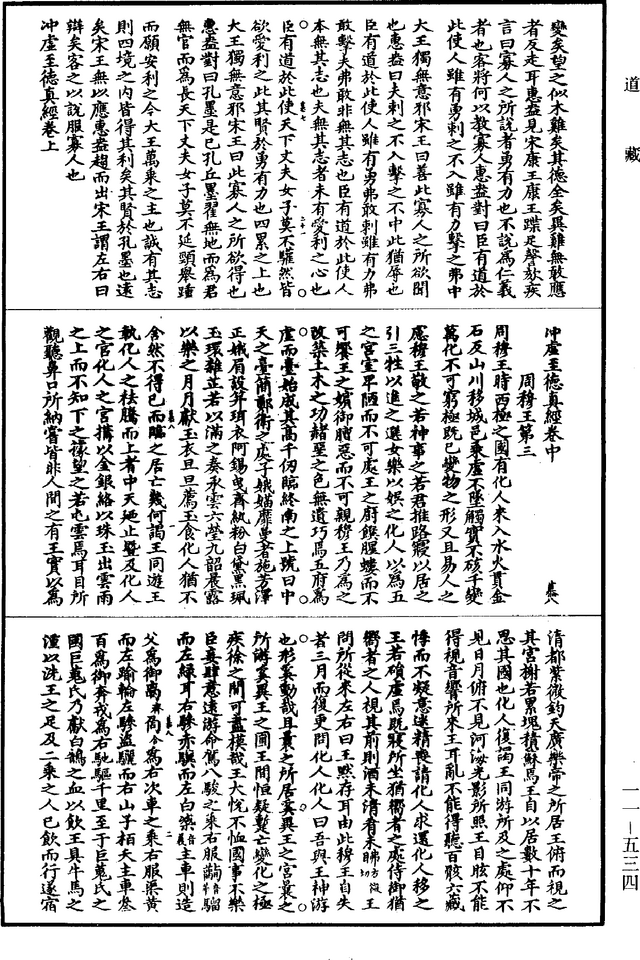 道藏
變矣望之似木雞矣其德全矣異雞無敢應
者反走耳惠盎見宋康王康王蹀足謦欬疾
言曰寡人之所說者勇有力也不說為仁義
者也客將何以教寡人惠盎對曰臣有道於
此使人雖有勇刺之不入雖有力擊之弗中
大王獨無意邪宋王曰善此寡人之所欲聞
也惠盎曰夫刺之不入擊之不中此猶辱也
臣有道於此使人雖有勇弗敢刺雖有力弗
敢擊夫弗敢非無其志也臣有道於此使人
本無其志也夫無其志者未有愛利之心也
臣有道於此使天下丈夫女子莫不驩然皆
欲愛利之此其賢於勇有力也四累之上也
大王獨無意邪宋王曰此寡人之所欲得也
惠盎對曰孔墨是已孔丘墨翟無地而為君
無官而為長天下丈夫女子莫不延頸舉踵
而願安利之今大王萬乘之主也誠有其志
則四境之內皆得其利矣其賢於孔墨也遠
矣宋王無以應惠盎趨而出宋王謂左右曰
辯矣客之以說服寡人也
沖虛至德真經卷上
沖虛至德真經卷中
周穆王第三
周穆王時西極之國有化人來入水火貫金
石反山川移城邑乘虛不墜觸實不硋千變
萬化不可窮極既已變物之形又且易人之
慮穆王敬之若神事之若君推路寢以居之
引三牲以進之選女樂以娛之化人以為王
之宮室卑陋而不可處王之廚饌腥螻而不
可饗王之嬪御膻惡而不可親穆王乃為之
改築土木之功赭堊之色無遺巧焉五府為
虛而臺始成其高千仞臨終南之上號曰中
天之臺簡鄭衛之處子娥媌靡曼者施芳澤
正娥眉設笄珥衣阿錫曳齊紈粉白黛黑珮
玉環雜芷若以滿之奏承雲六瑩九韶晨露
以樂之月月獻玉衣旦旦薦玉食化人猶不
舍然不得已而臨之居亡幾何謁王同遊王
執化人之袪騰而上者中天迺止暨及化人
之宮化人之宮構以金銀絡以珠玉出雲雨
之上而不知下之據望之若屯雲焉耳目所
觀聽鼻口所納嘗皆非人間之有王實以為
清都紫微鈞天廣樂帝之所居王俯而視之
其宮榭若累塊積蘇焉王自以居數十年不
思其國也化人復謁王同游所及之處仰不
見日月俯不見河海光影所照王目眩不能
得視音響所來王耳亂不能得聽百骸六藏
悸而不凝意迷精喪請化人求還化人移之
王若磒虛焉既寤所坐猶嚮者之處侍御猶
嚮者之人視其前則酒未清肴未昲王
問所從來左右曰王默存耳由此穆王自失
者三月而復更問化人化人曰吾與王神游
也形奚動哉且曩之所居奚異王之宮曩之
所游奚異王之圃王閒恒疑蹔亡變化之極
疾徐之間可盡模哉王大悅不恤國事不樂
臣妾肆意遠游命駕八駿之乘右服騮
而左綠耳右驂赤驥而左白主車則造
父為御為右次車之乘右服渠黃
而左踰輪左驂盜驪而右山子柏夭主車參
百為御奔戎為右馳驅千里至于巨蒐氏之
國巨蒐氏乃獻白鵠之血以飲王具牛馬之
湩以洗王之足及二乘之人已飲而行遂宿
一一—五三四